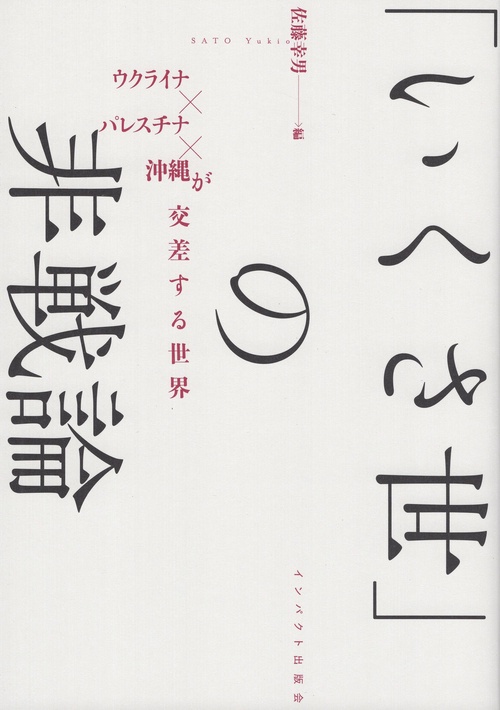 「いくさ世」
の
非戦論
ウクライナ
×
パレスチナ
×
沖縄が
交差する世界
SATO Yukio
佐藤幸男――>編
インパクト出版会